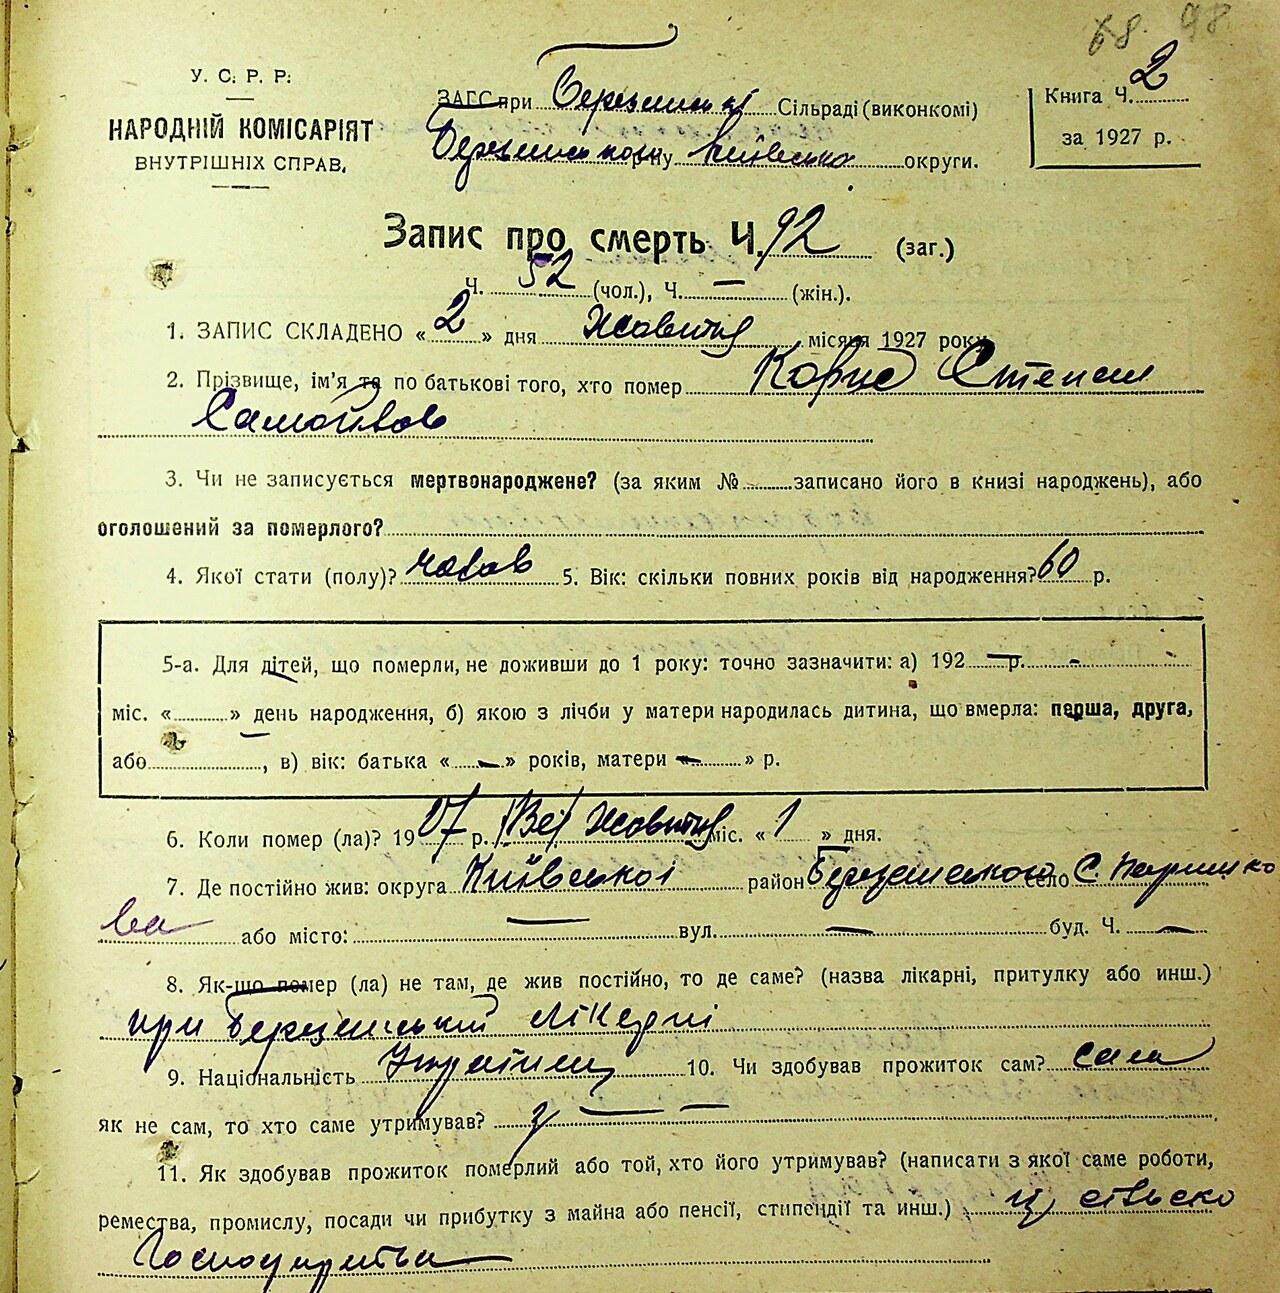 68. 98
У. С. Р. Р.
НАРОДНІЙ КОМІСАРІЯТ
ВНУТРІШНІХ СПРАВ.
ЗАГС при Сільраді (виконкомі)
р-ну Київсько округи.
Книга Ч. 2
за 1927 р.
Запис про смерть Ч. 92 (заг.)
Ч. 52 (чол.), Ч. — (жін.).
1. ЗАПИС СКЛАДЕНО « 2 » дня Жовтня місяця 1927 року
2. Прізвище, ім'я та по батькові того, хто помер Степан
Самойлов
3. Чи не записується мертвонароджене? (за яким № записано його в книзі народжень), або
оголошений за померлого?
4. Якої стати (полу)? чолов 5. Вік: скільки повних років від народження? 60 р.
5-а. Для дітей, що померли, не доживши до 1 року: точно зазначити: а) 192 — р. -
міс. « » день народження, б) якою з лічби у матери народилась дитина, що вмерла: перша, друга,
або , в) вік: батька « — » років, матери « — » р.
6. Коли помер (ла)? 1927 р. Жовтня міс. « 1 » дня.
7. Де постійно жив: округа Київської район село С. Паришко
ва або місто: — вул. — буд. Ч. —
8. Як-що помер (ла) не там, де жив постійно, то де саме? (назва лікарні, притулку або инш.)
при лікарні
9. Національність Українец 10. Чи здобував прожиток сам? сам
як не сам, то хто саме утримував? — —
11. Як здобував прожиток померлий або той, хто його утримував? (написати з якої саме роботи,
ремества, промислу, посади чи прибутку з майна або пенсії, стипендії та инш.) з сільско
Господарства